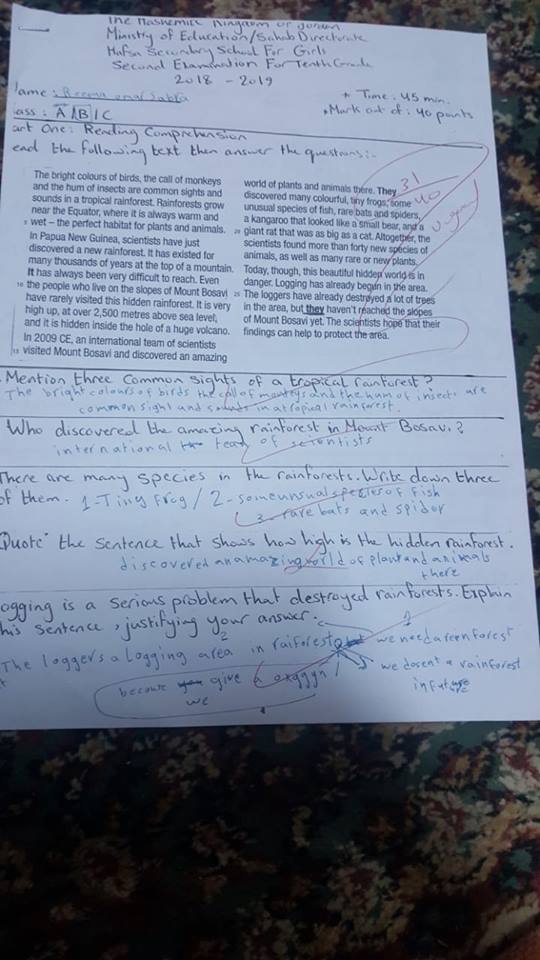 The Hashemite Kingdom of Jordan
Ministry of Education/Sahab Directorate
Hafsa Secondary School For Girls
Second Examination For Tenth Grade
2018 - 2019
Name :
* Time : 45 min.
Class : A / B / C
* Mark out of : 40 points
Part One : Reading Comprehension
Read the following text then answer the questions :-
31
40
V. good
The bright colours of birds, the call of monkeys
and the hum of insects are common sights and
sounds in a tropical rainforest. Rainforests grow
near the Equator, where it is always warm and
5 wet – the perfect habitat for plants and animals.
In Papua New Guinea, scientists have just
discovered a new rainforest. It has existed for
many thousands of years at the top of a mountain.
It has always been very difficult to reach. Even
10 the people who live on the slopes of Mount Bosavi
have rarely visited this hidden rainforest. It is very
high up, at over 2,500 metres above sea level,
and it is hidden inside the hole of a huge volcano.
In 2009 CE, an international team of scientists
15 visited Mount Bosavi and discovered an amazing
world of plants and animals there. They
discovered many colourful, tiny frogs, some
unusual species of fish, rare bats and spiders,
a kangaroo that looked like a small bear, and a
20 giant rat that was as big as a cat. Altogether, the
scientists found more than forty new species of
animals, as well as many rare or new plants.
Today, though, this beautiful hidden world is in
danger. Logging has already begun in the area.
25 The loggers have already destroyed a lot of trees
in the area, but they haven't reached the slopes
of Mount Bosavi yet. The scientists hope that their
findings can help to protect the area.
Mention three common sights of a tropical rainforest?
The bright colours of birds the call of monkeys and the hum of insects are
common sight and sounds in a tropical rainforest.
Who discovered the amazing rainforest in Mount Bosavi?
international team of scientists
There are many species in the rainforests. Write down three
of them. 1-Tiny frog / 2-some unusual species of fish
3- rare bats and spider
Quote the sentence that shows how high is the hidden rainforest.
discovered an amazing world of plant and animals
there
Logging is a serious problem that destroyed rainforests. Explain
this sentence, justifying your answer.
The loggers a logging area in
we need a
forest
we
a rainforest
in future
give a
we